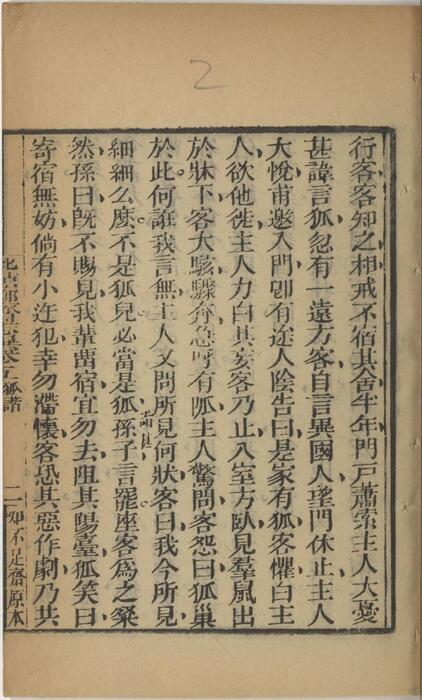 2
行客客知之相戒不宿其舍半年門戶蕭索主人大憂
甚諱言狐忽有一遠方客自言異國人望門休止主人
大悅甫邀入門卽有途人陰告曰是家有狐客懼白主
人欲他徙主人力白其妄客乃止入室方臥見羣鼠出
於牀下客大駭驟奔急呼有狐主人驚問客怨曰狐巢
於此何誑我言無主人又問所見何狀客曰我今所見
細細么麽不是狐兒必當是狐孫子言罷座客爲之粲
然孫曰旣不賜見我輩留宿宜勿去阻其陽臺狐笑曰
寄宿無妨倘有小迕犯幸勿滯懷客恐其惡作劇乃共
狐諧
二
知不足齋原本